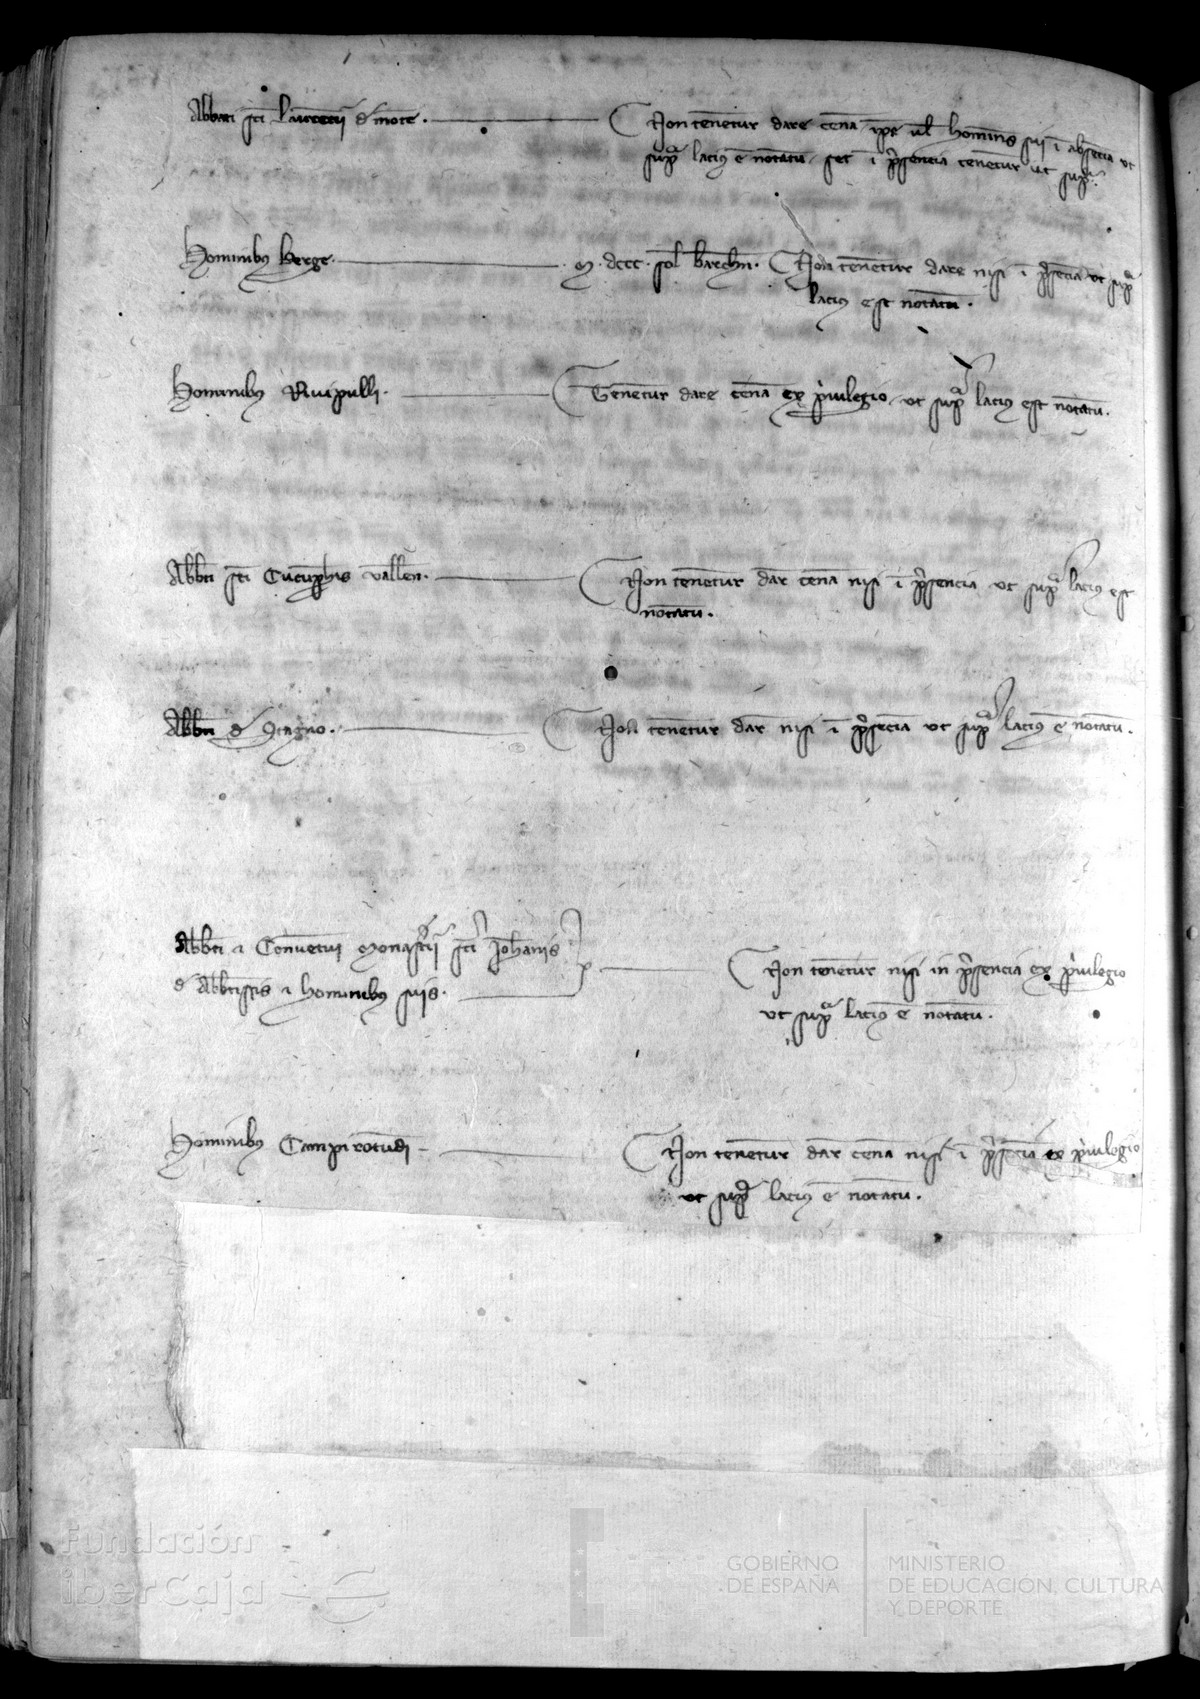 Abbati sci laurecii d mote. Non tenetur dare cena ipse ul homines sui i absecia ut
supra lacius e notatu set i psencia tenetur ut supra.
Hominibus Berge. M. dccc. sol barchn. Non tenetur dare nisi i psecia ut supra
lacius est notatu.
Hominibus Rivipulli. Tenetur dare cena ex privilegio ut supra lacius est notatu.
Abbti sci Cucuphis vallen. Non tenetur dar cena nisi i psencia ut supra lacius est
notatu.
Abbti d Stagno. Non tenetur dar nisi i psecia ut supra lacius e notatu.
Abbti a Conventui Monastii sci Johanis
d Abbtissis a hominibus suis. Non tenetur nisi in psencia ex privilegio
ut supra lacius e notatu.
Hominibus Campirotudi. Non tenetur dar cena nisi i psecia ex privilegio
ut supra lacius e notatu.
Fundación
iberCaja
GOBIERNO
DE ESPAÑA
MINISTERIO
DE EDUCACIÓN, CULTURA
Y DEPORTE